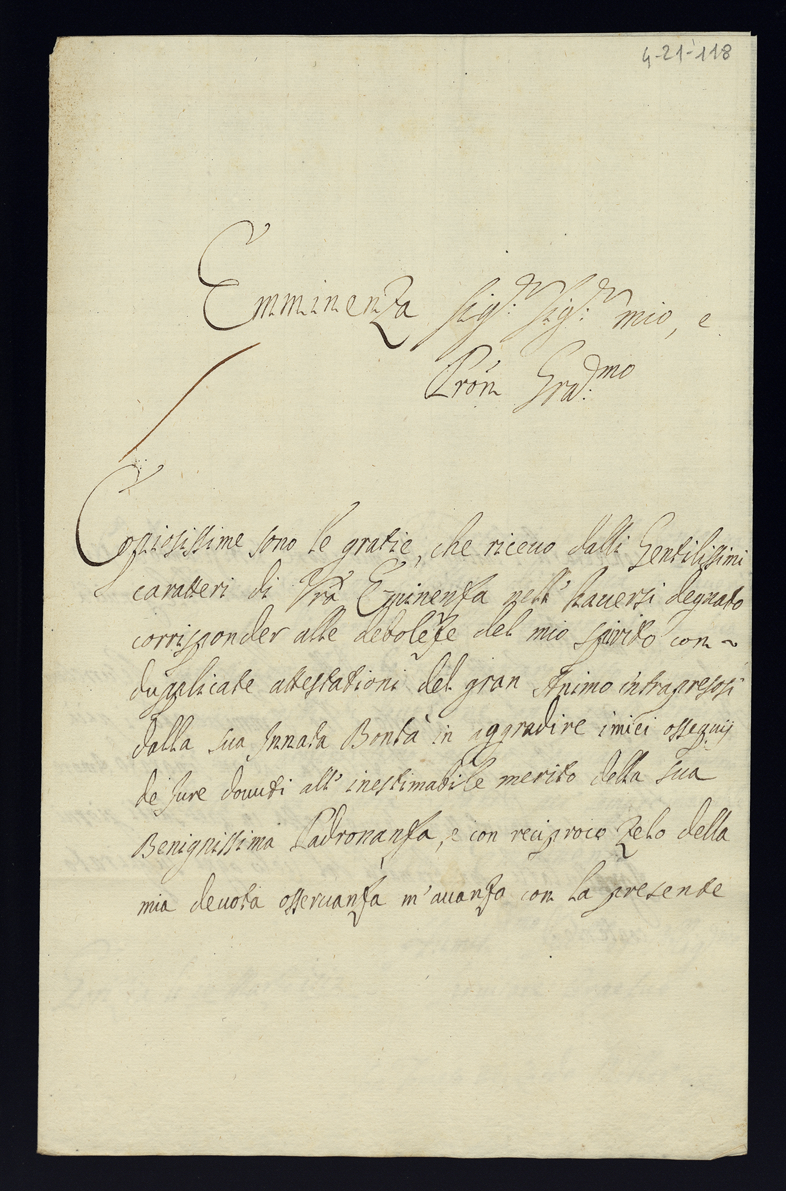 4-21-118
Emminenza Sig.r Sig.r mio, e
Prōn Gra.mo
Copiosissime sono le gratie, che riceuo dalli Gentilissimi
caratteri di Vrā Eminenza nell' hauersi degnato
corrisponder alle debolezze del mio spirito con
duplicate attestationi del gran Animo intrapresosi
dalla sua Innata Bontà in aggradire i miei ossequij
de Jure douuti all' inestimabile merito della sua
Benignissima Padronanza, e con reciproco zelo della
mia deuota osseruanza m'auanzo con la presente